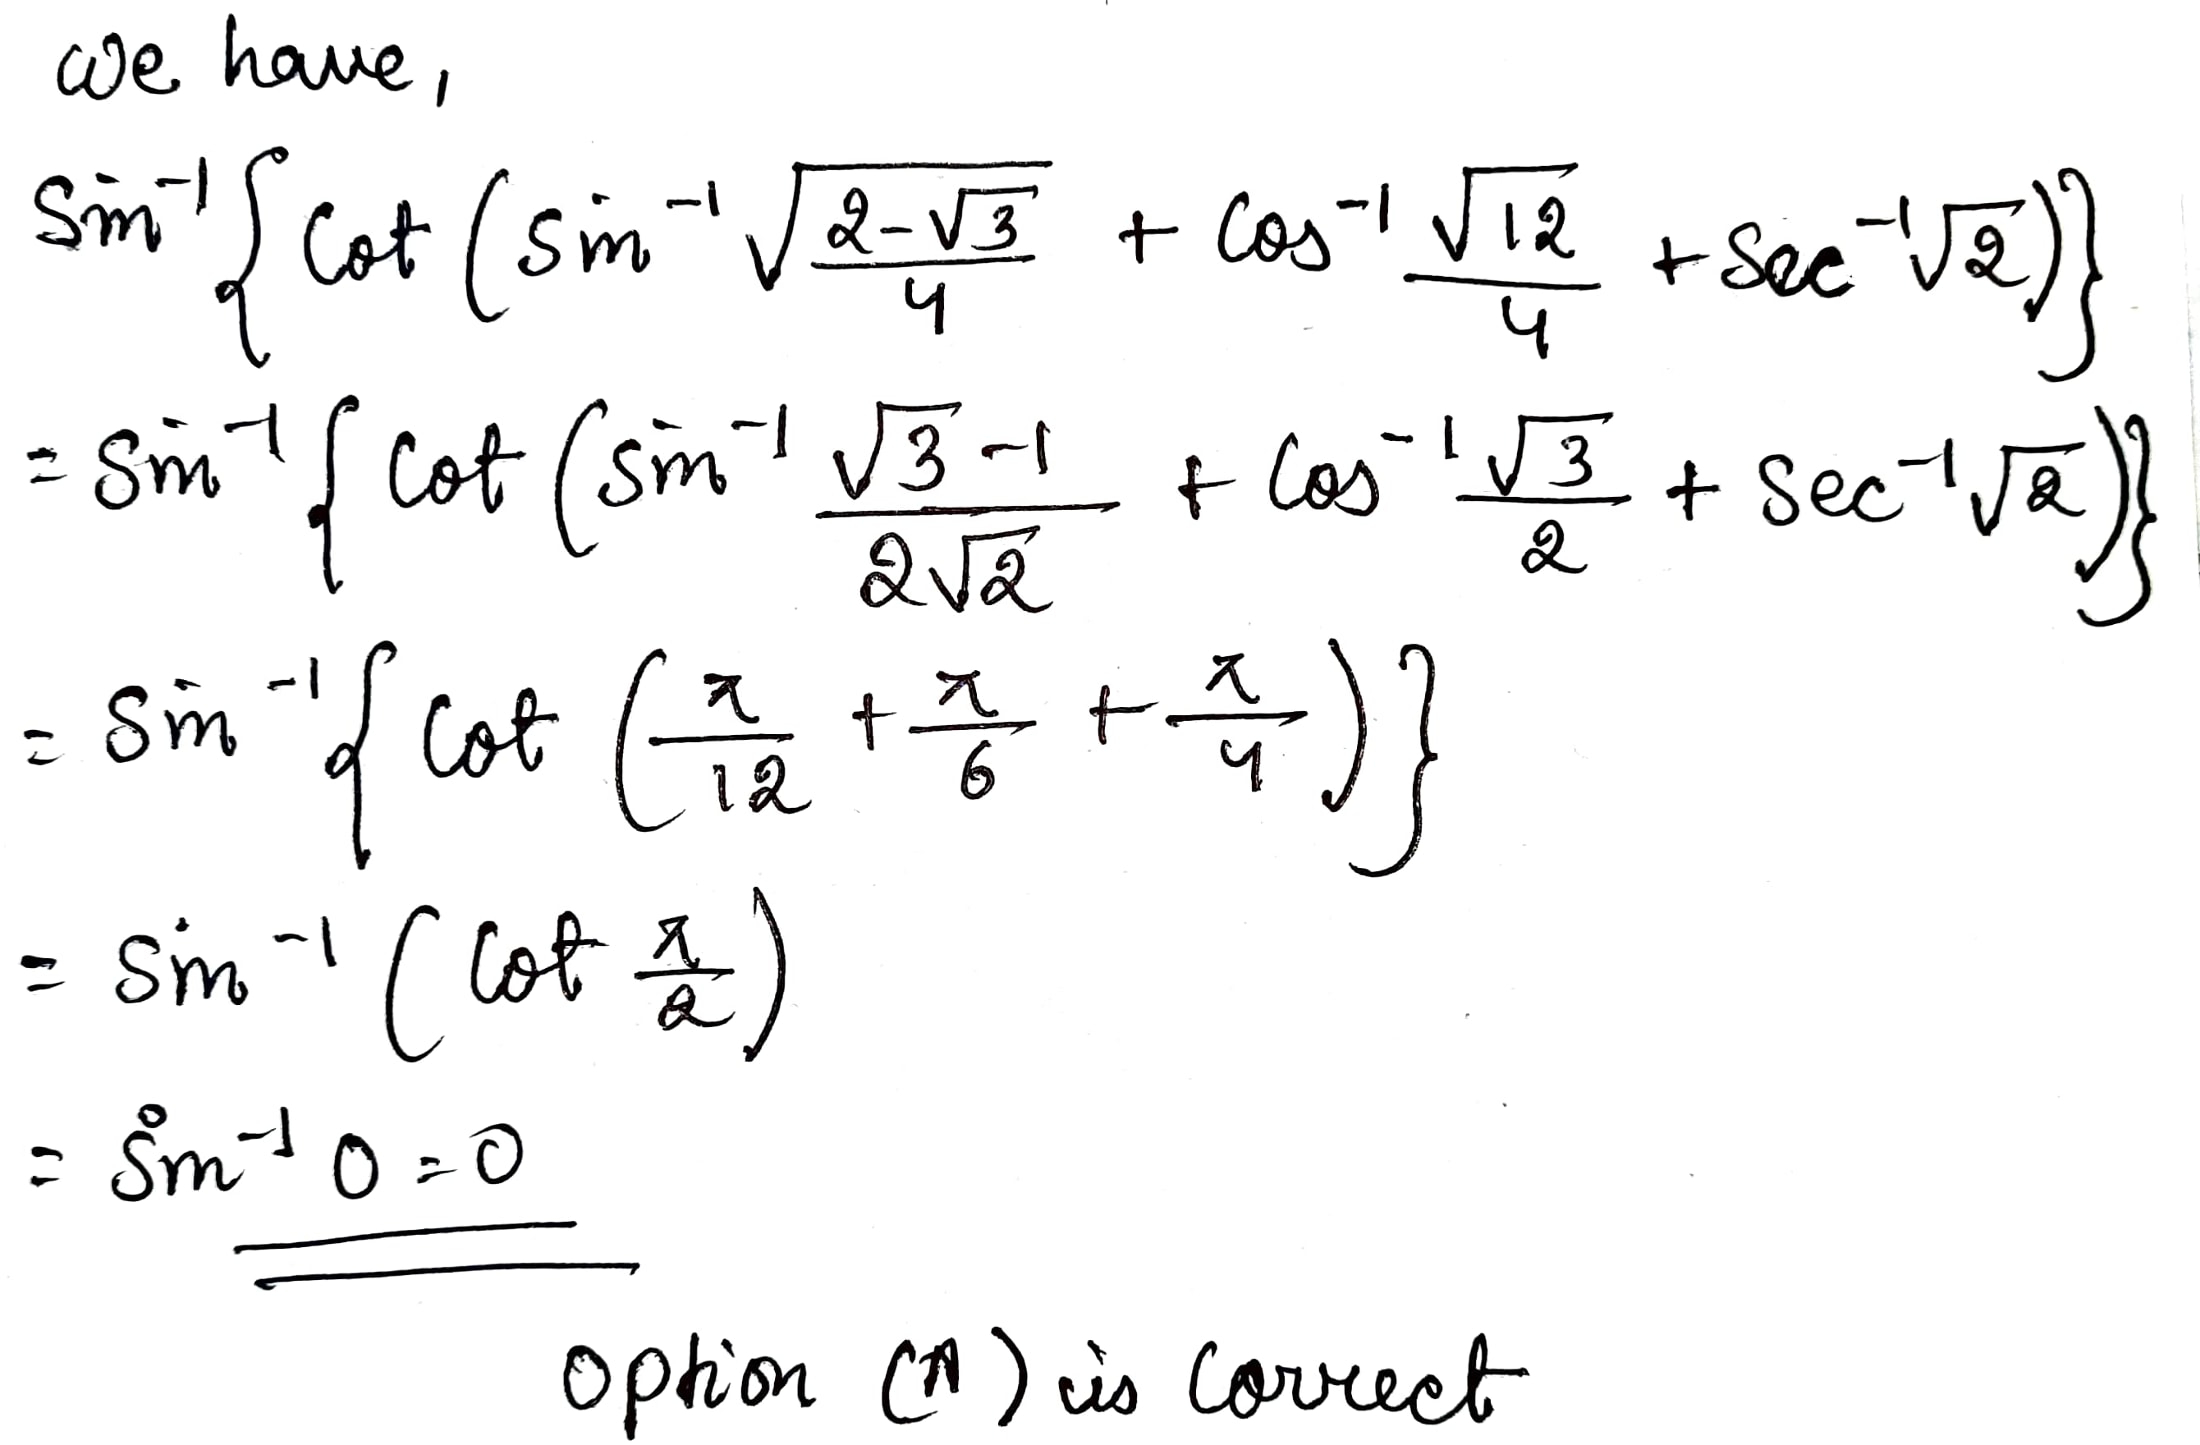 We have,
Sin⁻¹{Cot(Sin⁻¹√((2-√3)/4) + Cos⁻¹ √12/4 + Sec⁻¹√2)}
= Sin⁻¹{Cot(Sin⁻¹ (√3-1)/(2√2) + Cos⁻¹ √3/2 + Sec⁻¹√2)}
= Sin⁻¹{Cot(π/12 + π/6 + π/4)}
= Sin⁻¹(Cot π/2)
= Sin⁻¹ 0 = 0
Option (A) is Correct